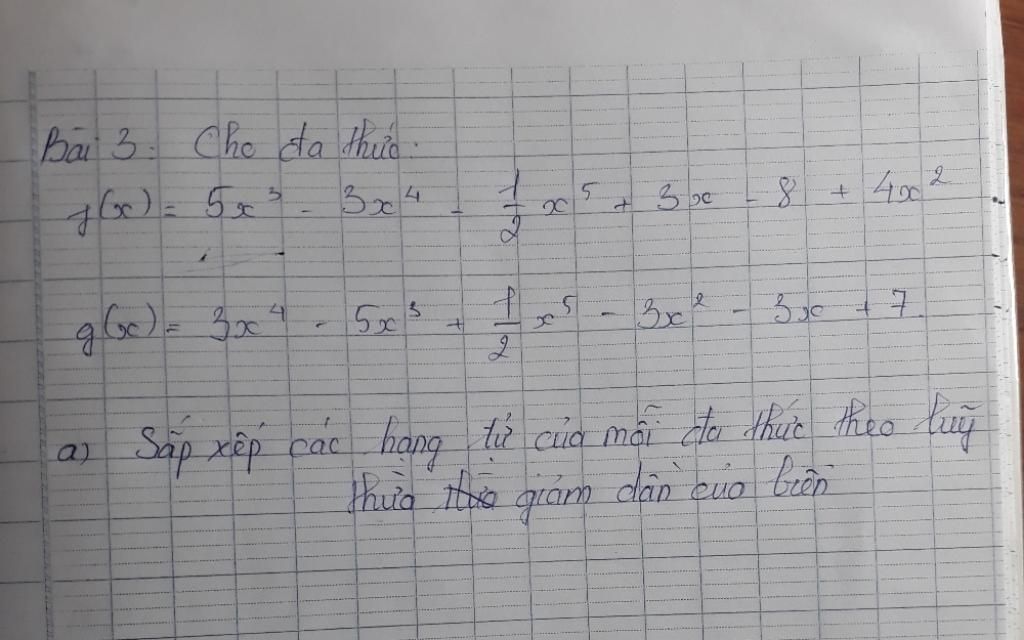 Bài 3: Cho đa thức:
f(x) = 5x³ - 3x⁴ - 1/2 x⁵ + 3x - 8 + 4x²
g(x) = 3x⁴ - 5x³ + 1/2 x⁵ - 3x² - 3x + 7
a) Sắp xếp các hạng tử của mỗi đa thức theo luỹ
thừa giảm dần của biến